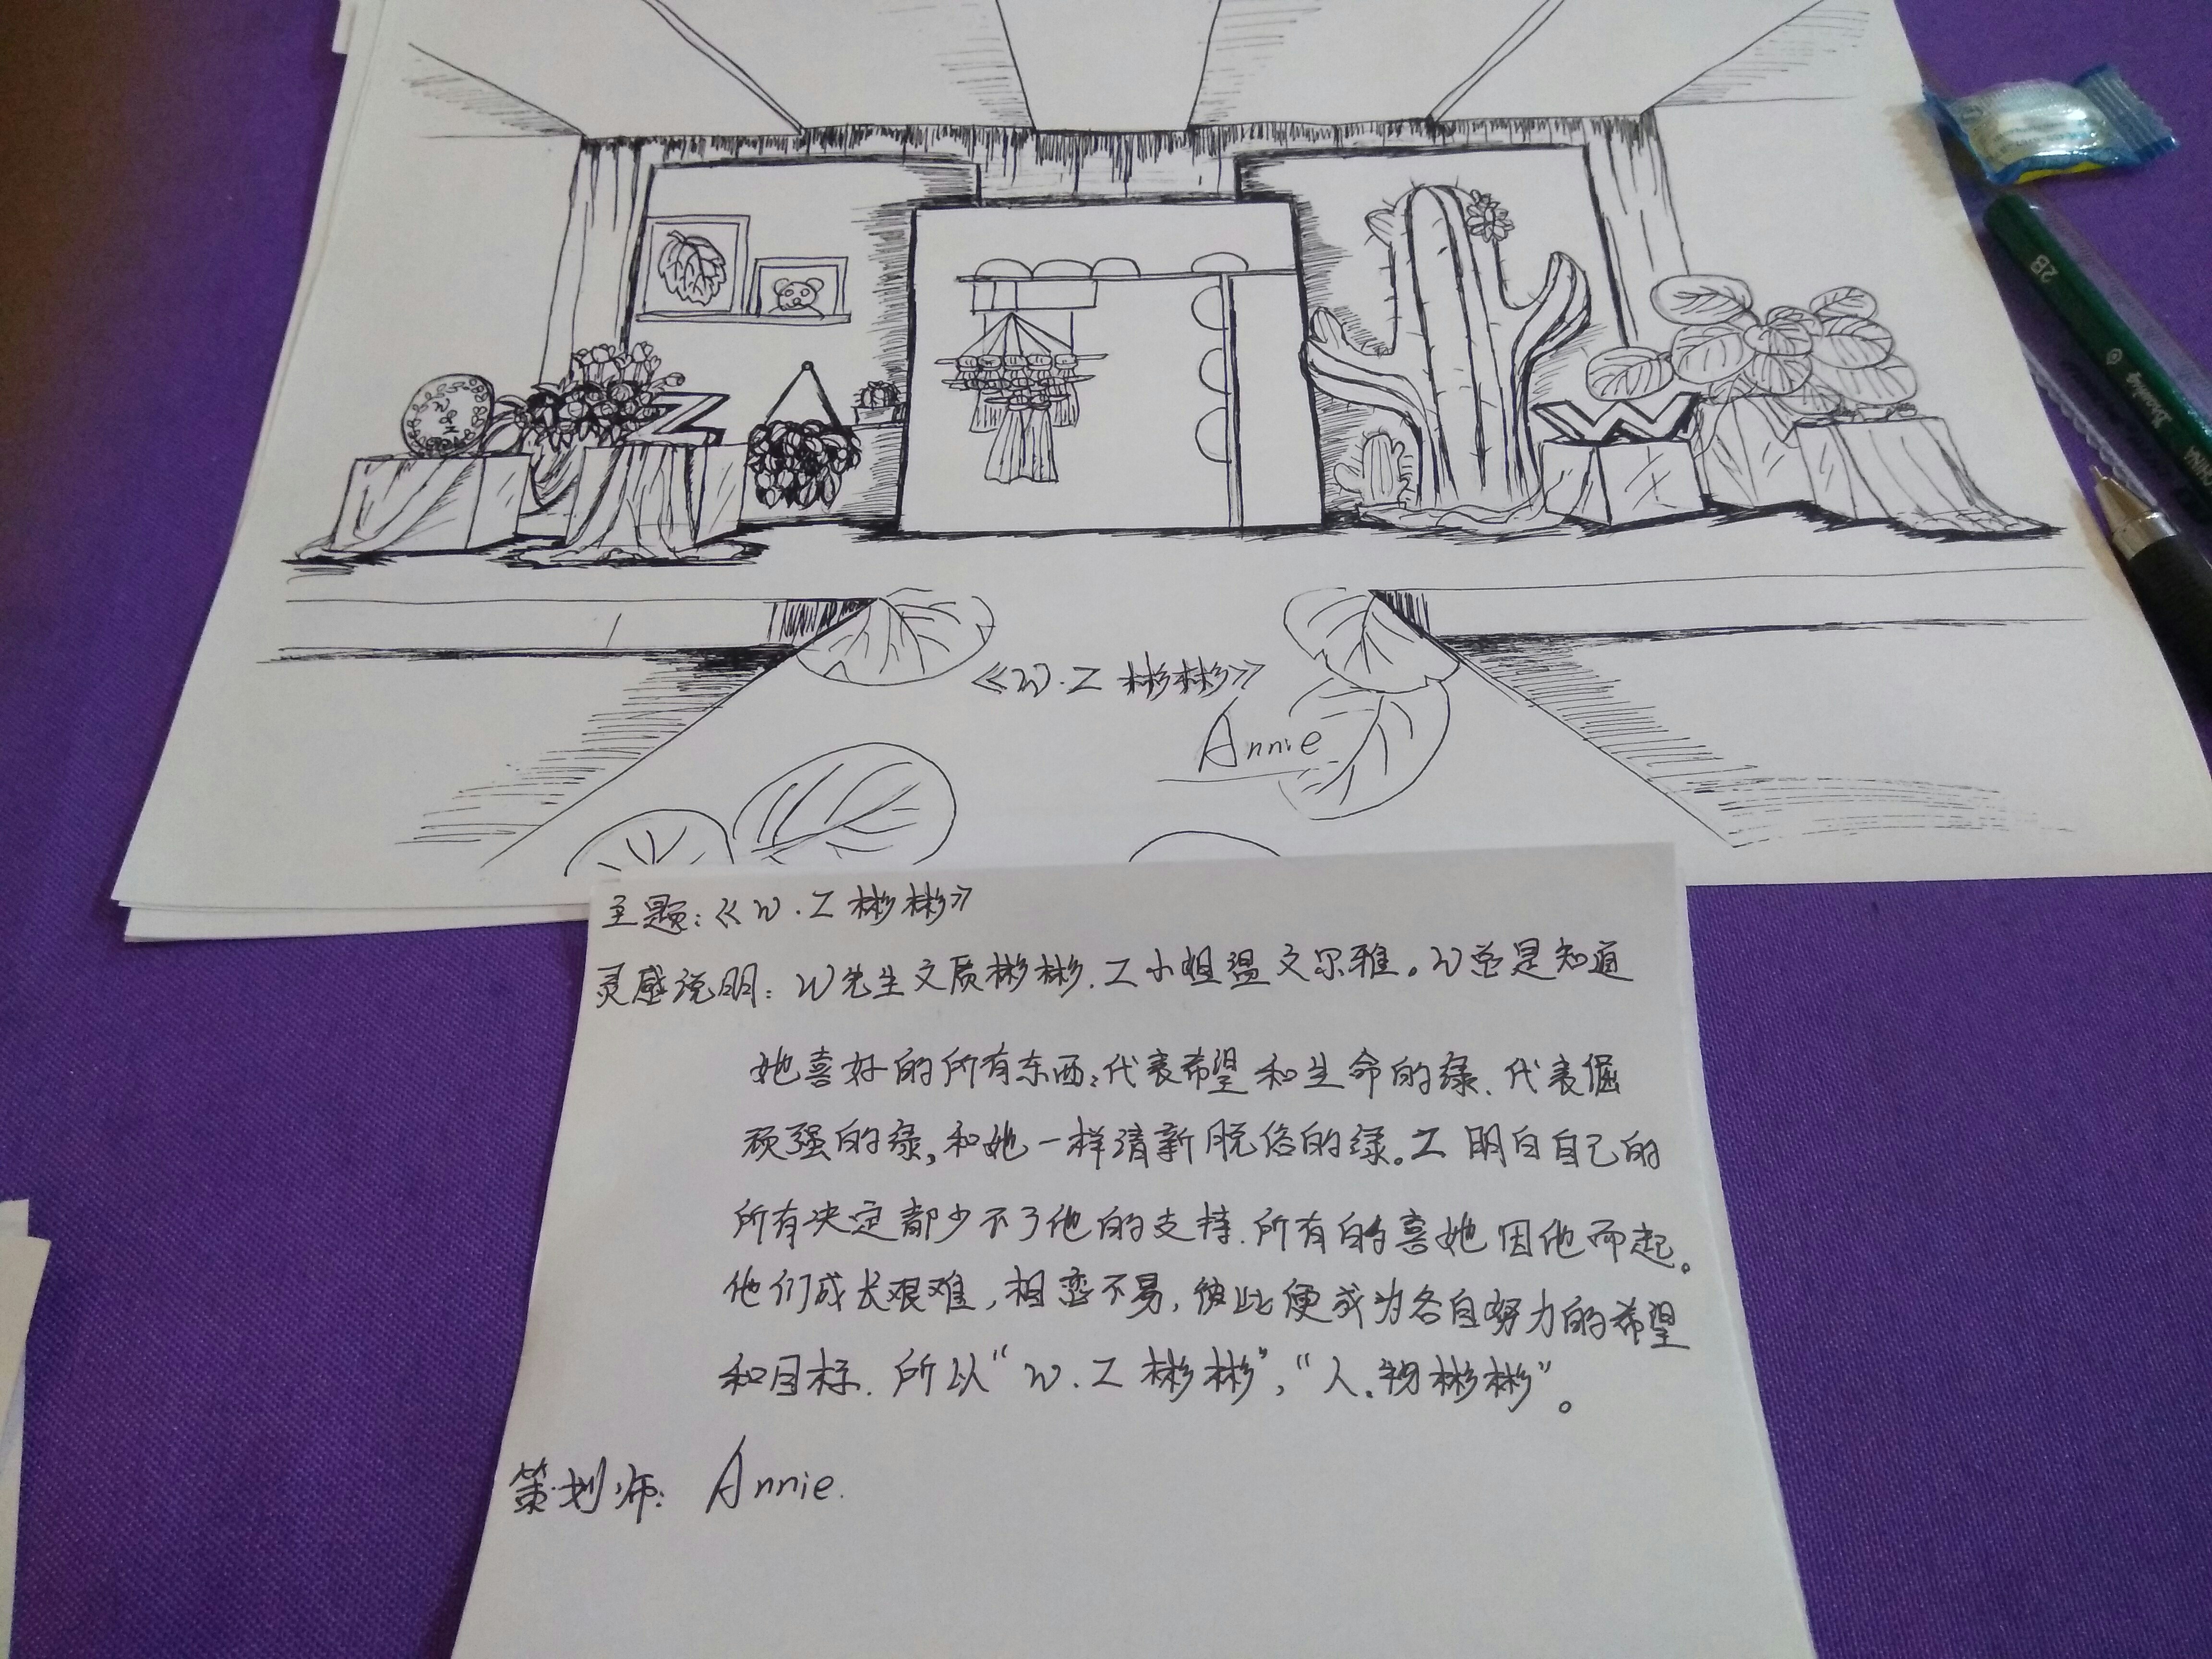 Z
W
《W·Z 彬彬》
Annie
主题:《W·Z 彬彬》
灵感说明: W先生文质彬彬.Z小姐温文尔雅。W总是知道
她喜好的所有东西:代表希望和生命的绿、代表倔
顽强的绿,和她一样清新脱俗的绿。Z 明白自己的
所有决定都少不了他的支持.所有的喜她因他而起。
他们成长艰难,相恋不易,彼此便成为各自努力的希望
和目标.所以“W.Z彬彬”,“人.物彬彬”。
策划师: Annie.
2B